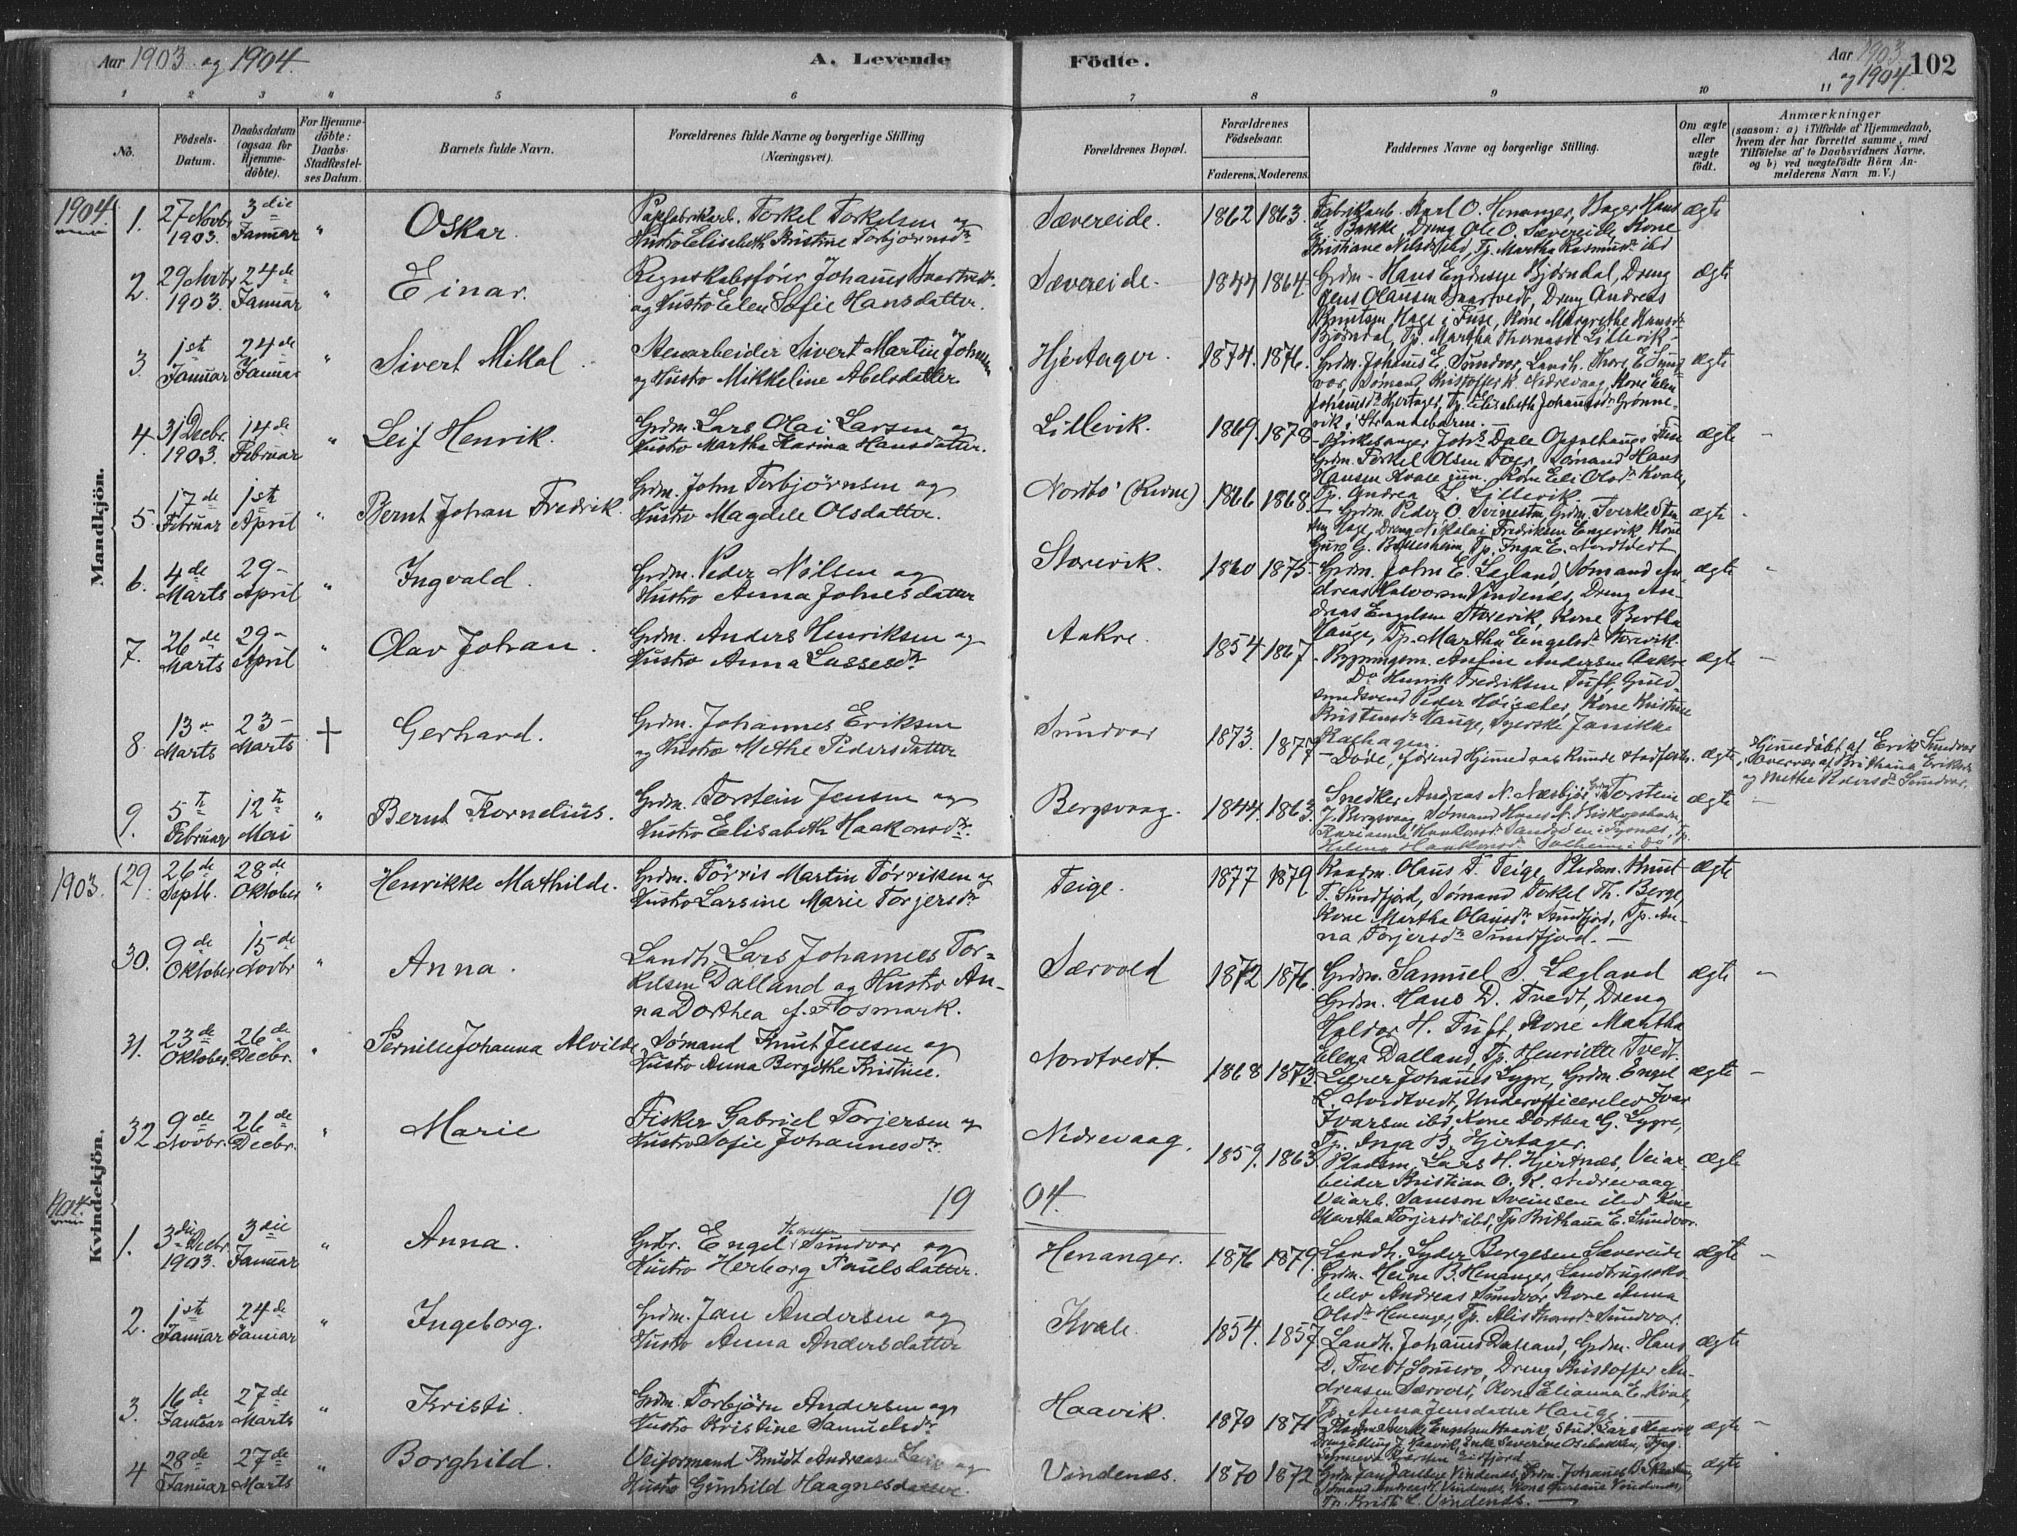 Aar 1903 og 1904.
A. Levende
Födte.
Aar 1903 og 1904.
102
1 2 3 4 5 6 7 8 9 10 11
No.
Födsels-Datum.
Daabsdatum (ogsaa for Hjemme-döbte).
For Hjemme-döbte: Daabs-Stadfæstel-ses Datum.
Barnets fulde Navn.
Forældrenes fulde Navne og borgerlige Stilling (Næringsvei).
Forældrenes Bopæl.
Forældrenes Födselsaar.
Faderens. Moderens.
Faddernes Navne og borgerlige Stilling.
Om ægte eller uægte födt.
Anmærkninger
(saasom: a) i Tilfælde af Hjemmedaab, hvem der har forrettet samme, med Tilföielse af to Daabsvidners Navne, og b) ved uægtefödte Börn Anmelderens Navn m. V.)
Mandkjön.
1904
1. 27 Novbr 1903. 3die Januar " Oskar. Papfabrikarb. Torkel Torkelsen og Hustro Elisabeth Kristine Torbjørnsdr Sævereide. 1862 1863. Fabrikarb. Karl O. Henanger, Bager Hans E. Bakke, Dreng Ole O. Sævereide, Kone Kristiane Nilsdr ibid, Tp. Martha Rasmusdr ibd ægte
2. 29 Novbr 1903. 24de Januar " Einar. Regnskabsfører Johannes og Hustro Elen Sofie Hansdatter. Sævereide. 1844 1864. Grdm. Hans Bjørndal, Dreng Jens Olausen, Dreng Andreas Knutsen Hage i Fuse, Kone Margrethe Hansdr Bjørndal, Tp. Martha Thomasdr Lillevik ægte
3. 1st Januar 24de Januar " Sivert Mikal. Stenarbeider Sivert Martin Johnsen og Hustro Mikkeline Abelsdatter. Hjertager. 1874. 1876. Grdm. Johannes E. Sundvor, Landh. Thore E. Sundvor, Sømand Kristoffer K. Nedrevaag, Kone Elen Johannesdr Hjertager, Tp. Elisabeth Johannesdr Grønnevik i Strandebarm. ægte
4. 31 Decbr. 1903. 14de Februar " Leif Henrik. Grdm. Lars Olai Larsen og Hustro Martha Karina Hansdatter. Lillevik. 1869. 1878 Kirkesanger Johs Dale, Grdm. Torkel Olsen, Sømand Hans Hansen Kvale jun. Kone Eli Olsdr Kvale, Tp. Andrea L. Lillevik. ægte
5. 17de Februar 1st April " Bernt Johan Fredrik. Grdm. John Torbjørnsen og Hustro Magdele Olsdatter. Nordbø 1866 1868 Grdm. Peder O. Svinestm, Dreng Nikolai Fredriksen Engevik, Kone Guro G., Tp. Inga E. Nordtvedt ægte
6. 4de Marts 29 April " Ingvald. Grdm. Peder Nilsen og Hustro Anna Johnesdatter Storevik. 1860 1875. Grdm. John E. Lægland, Sømand Andreas Halvorsen Vindenes, Dreng Andreas Engelsen Storevik, Kone Bertha Hauge, Tp. Martha Engelsdr Storevik. ægte
7. 26de Marts 29 April " Olav Johan. Grdm. Anders Henriksen og Hustro Anna Lassesdr Aakre. 1854 1867 Bygningsm. Anfin Andersen Aakre, Do Henrik Fredriksen Tuft, Guldsmedsvend Peder Høisæter, Kone Kristine Kristensdr Hauge, Syerske Janikke ægte
8. 13 Marts 23 Marts + Gerhard. Grdm. Johannes Eriksen og Hustro Methe Pedersdatter Sundvor 1873. 1877 Døde, førend Hjemmedaab kunde stadfæstes. ægte Hjemmedøbt af Erik Sundvor, Overvær af Brithana Eriksdr og Methe Pedersdr Sundvor.
9. 5te Februar 12te Mai " Bernt Kornelius. Grdm. Torstein Jensen og Hustro Elisabeth Haakonsdr. Bergsvaag. 1844. 1863. Snedker Andreas N. Næsbjø, Grdm Torstein J. Bergsvaag, Sømand Hans, Tysnes, Tp. Helena Haakonsdr Solheim i Do ægte
Kvindekjön.
1903.
29. 26de Septb. 28de Oktober " Henrikke Mathilde. Grdm. Tørris Martin Tørrissen og Hustro Larsine Marie Torjersdr Teige. 1877 1879 Kaarm. Olaus T. Teige, Pladsm. Knut T. Sundfjord, Sømand Torkel Th. Berge, Kone Martha Olausdr Sundfjord, Tp. Anna Torjersdr Sundfjord. ægte
30. 9de Oktober 15de Novbr " Anna. Landh. Lars Johannes Torkelsen Dalland og Hustro Anna Dorthea f. Fosmark. Særvold 1872 1876. Grdm. Samuel S. Lægland, Grdm. Hans D. Tvedt, Dreng Haldor H. Tuft, Kone Martha Elena Dalland, Tp. Henriette Tvedt. ægte
31. 23de Oktober 26de Decbr. " Pernille Johanna Alvilde Sømand Knut Jensen og Hustro Anna Bergithe Kristine. Nordtvedt. 1868 1873. Lærer Johannes Lygre, Grdm. Engel L. Nordtvedt, Underofficerelev Ivar Ivarsen ibd, Kone Dorthea G. Lygre, Tp. Inga B. Hjertager. ægte
32 9de Novbr. 26de Decbr. " Marie Fisker Gabriel Torjersen og Hustro Sofie Johannesdr. Nedrevaag. 1859. 1863 Pladsm. Lars H. Hjertnes, Veiarbeider Kristian O. K. Nedrevaag, Veiarb. Samson Sveinsen ibd, Kone Martha Torjersdr ibd, Tp. Brithana E. Sundvor ægte
1904.
19 04.
1. 3die Decbr. 1903. 3die Januar " Anna. Grbr. Engel Thorsen Sundvor og Hustro Herborg Paulsdatter. Henanger. 1876 1879. Landh. Syder Børgesen Sævereide, Grdm. Heine B. Henanger, Landbrugsskoleelev Andreas Sundvor, Kone Anna Olsdr Henanger, Tp. Alis Thorsdr Sundvor. ægte
2. 1st Januar 24de Januar " Ingeborg. Grdm. Jan Andersen og Hustro Anna Andersdatter Kvale. 1854. 1857 Landh. Johannes Dalland, Grdm. Hans D. Tvedt, Dreng Kristoffer Andreasen Særvold, Kone Elianna E. Kvale, Tp. Anna Jensdatter Hauge. ægte
3. 16de Januar 27de Marts " Kristi. Grdm. Torbjørn Andersen og Hustro Kristine Samuelsdr Haavik. 1870 1871 Engelsen Haavik, Stud. Lars Haavik, Dreng Elling J. Haavik, Enke Severine ægte
4 28de Januar 27de Marts " Borghild. Veiformand Knudt Andreassen og Hustro Gunhild Haagnesdatter. Vindenes. 1870 1872 Grdm Jan Jansen Vindenes, Grdm. Johannes, Sømand Andreas H. Vindenes, Kone Vindenes, Tp. Kristi L. Vindenes. ægte